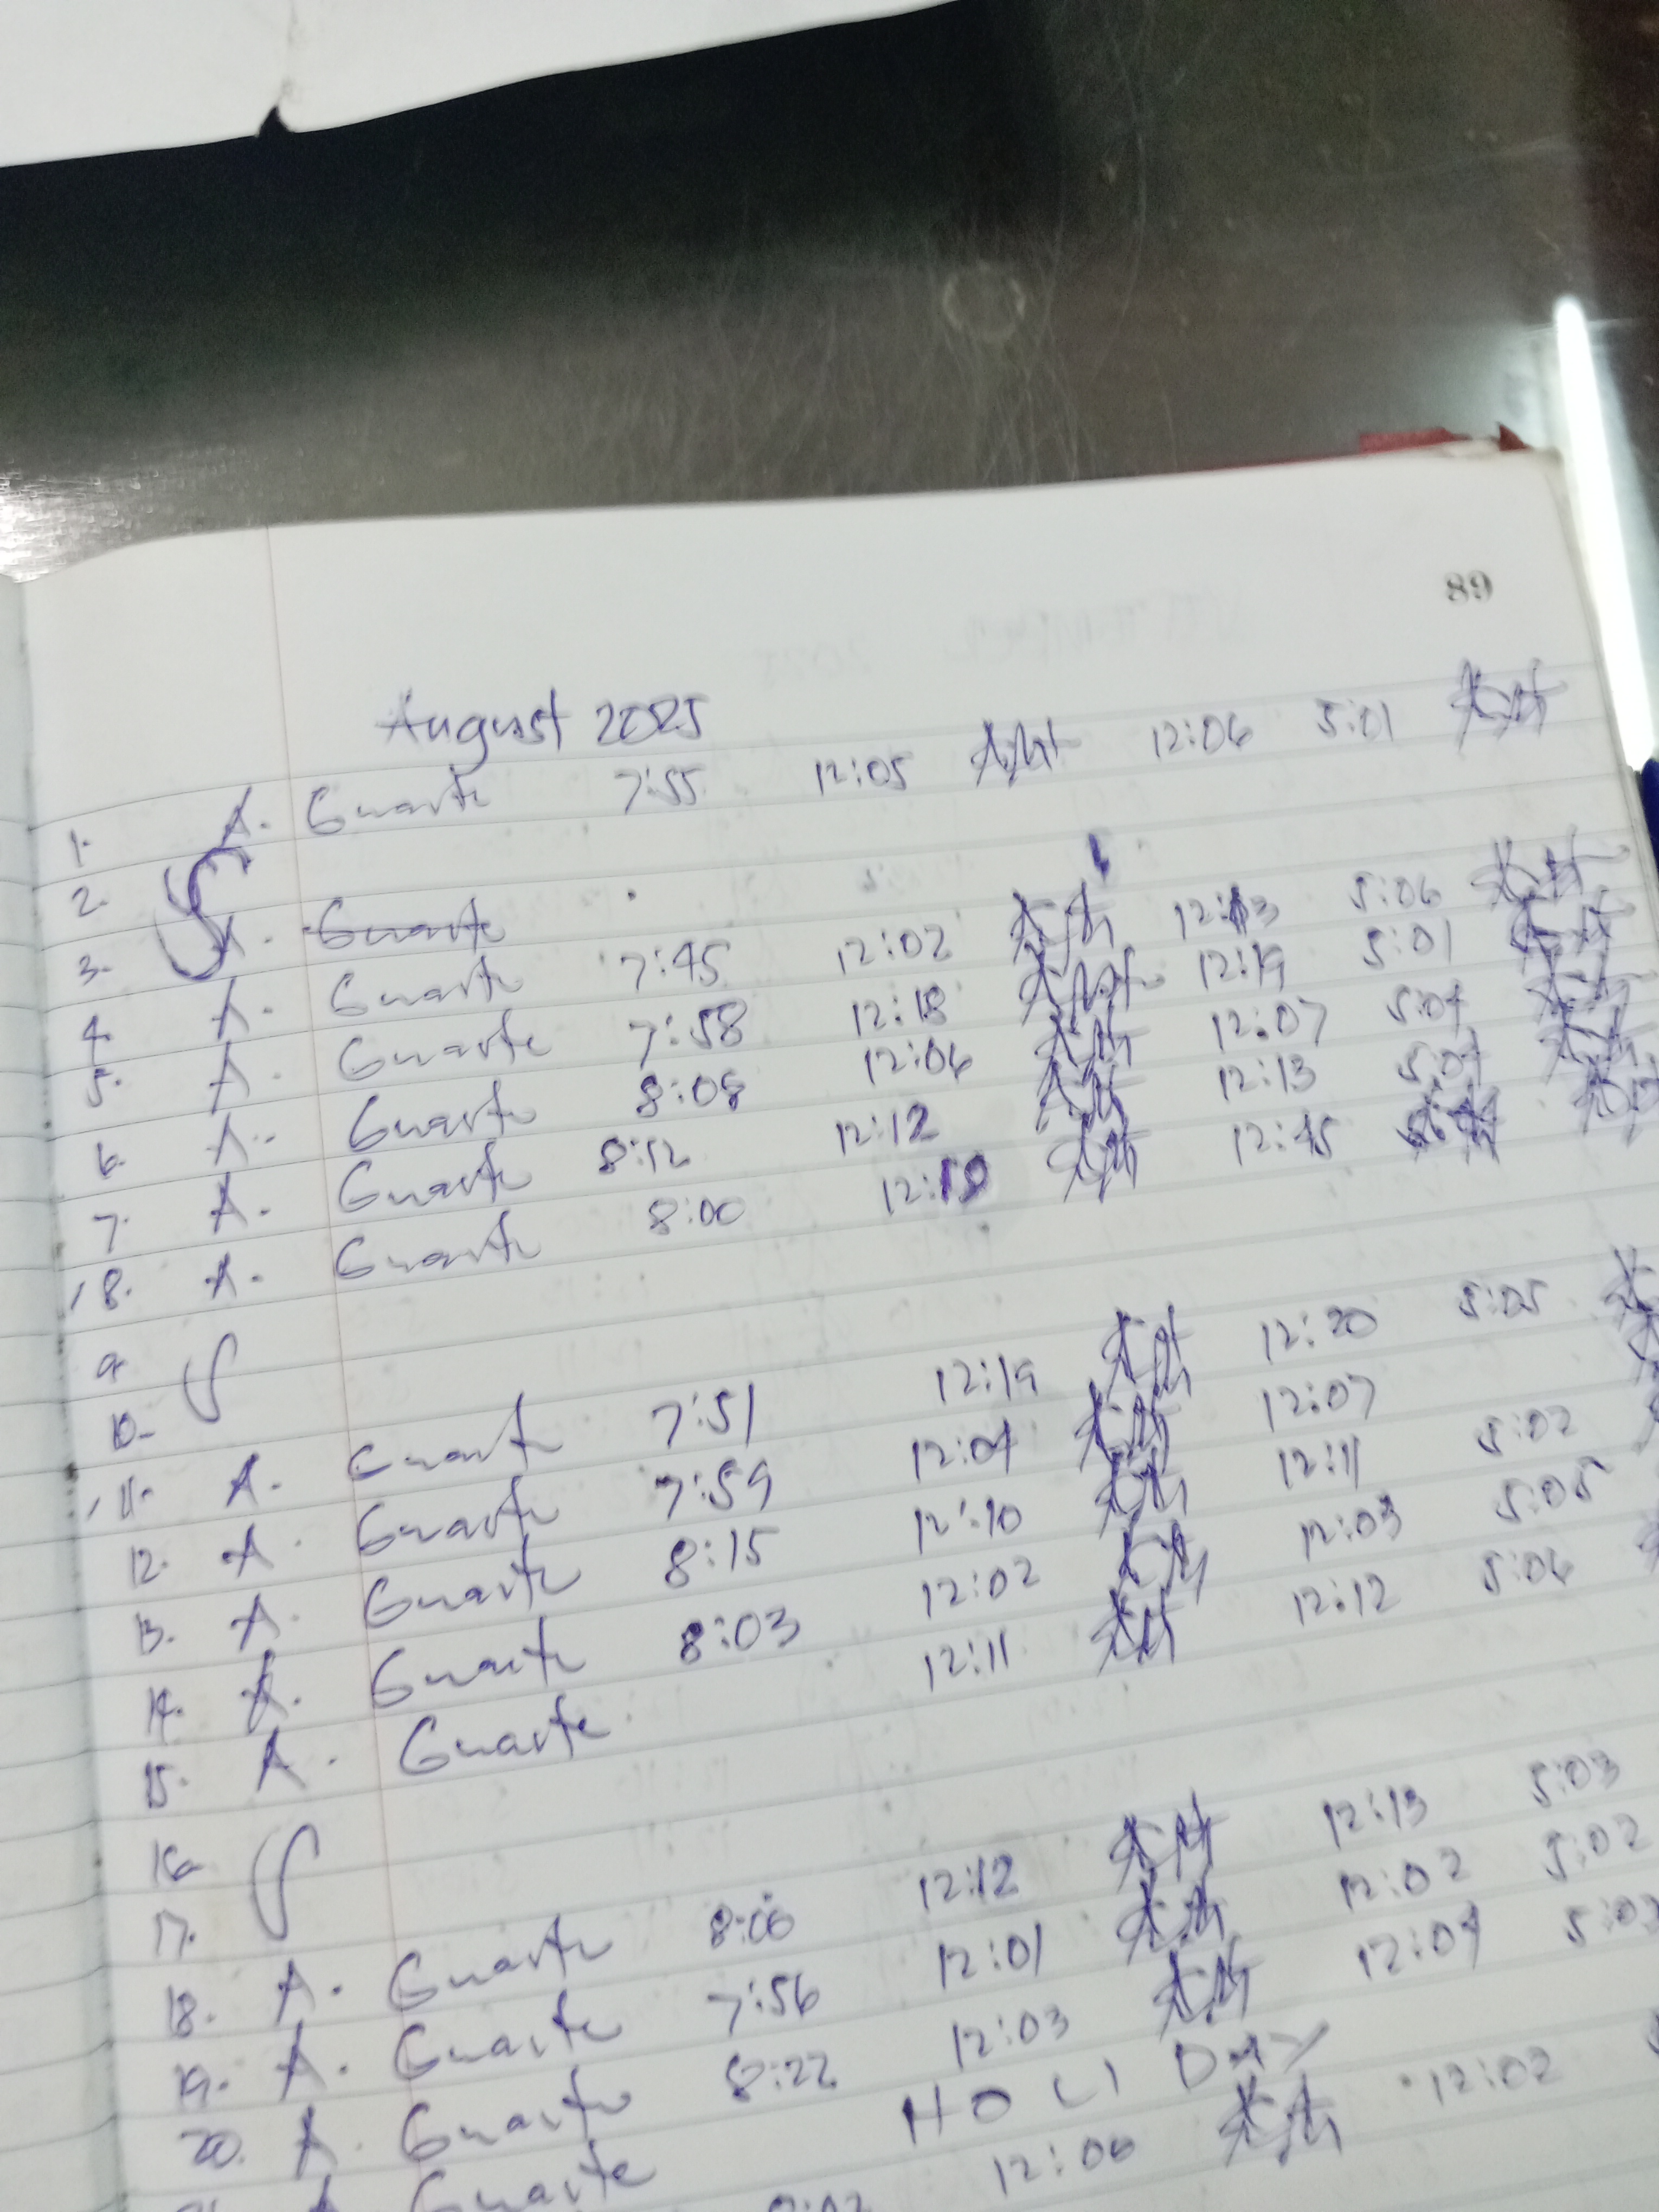 89
August 2025
1. A. Guarte 7:55 12:05 12:06 5:01
2.
3. A. Guarte
4. A. Guarte 7:45 12:02 12:03 5:06
5. A. Guarte 7:58 12:18 12:19 5:01
6. A. Guarte 8:08 12:06 12:07 5:04
7. A. Guarte 8:12 12:12 12:13 5:04
8. A. Guarte 8:00 12:45
9.
10.
11. A. Guarte 7:51 12:19 12:20 5:05
12. A. Guarte 7:59 12:07
13. A. Guarte 8:15 12:10 12:11 5:02
14. A. Guarte 8:03 12:02 12:03 5:05
15. A. Guarte 12:11 12:12 5:06
16.
17.
18. A. Guarte 12:12 12:13 5:03
19. A. Guarte 7:56 12:01 12:02 5:02
20. A. Guarte 8:22 12:03 12:04 5:03
Guarte HOLIDAY
12:02